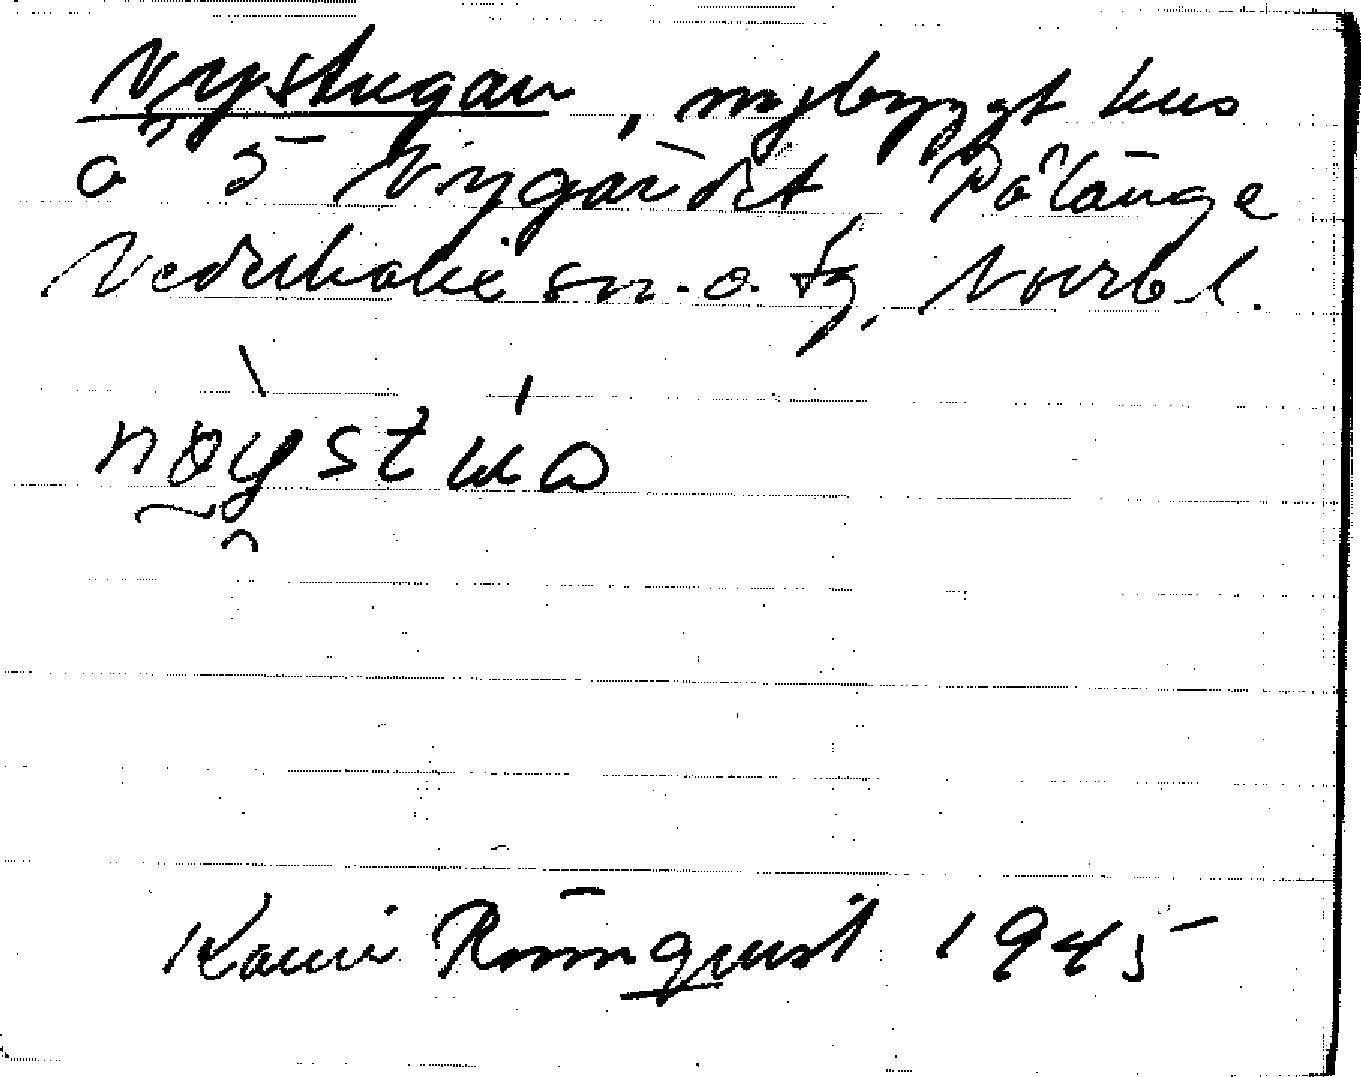 Nystugan, nybyggt hus
å n:o 5 Nygårdet, Pålänge
Nederkalix sn. o. tg, Norrb. l.
nøystuα
Karin Rönnquist 1945